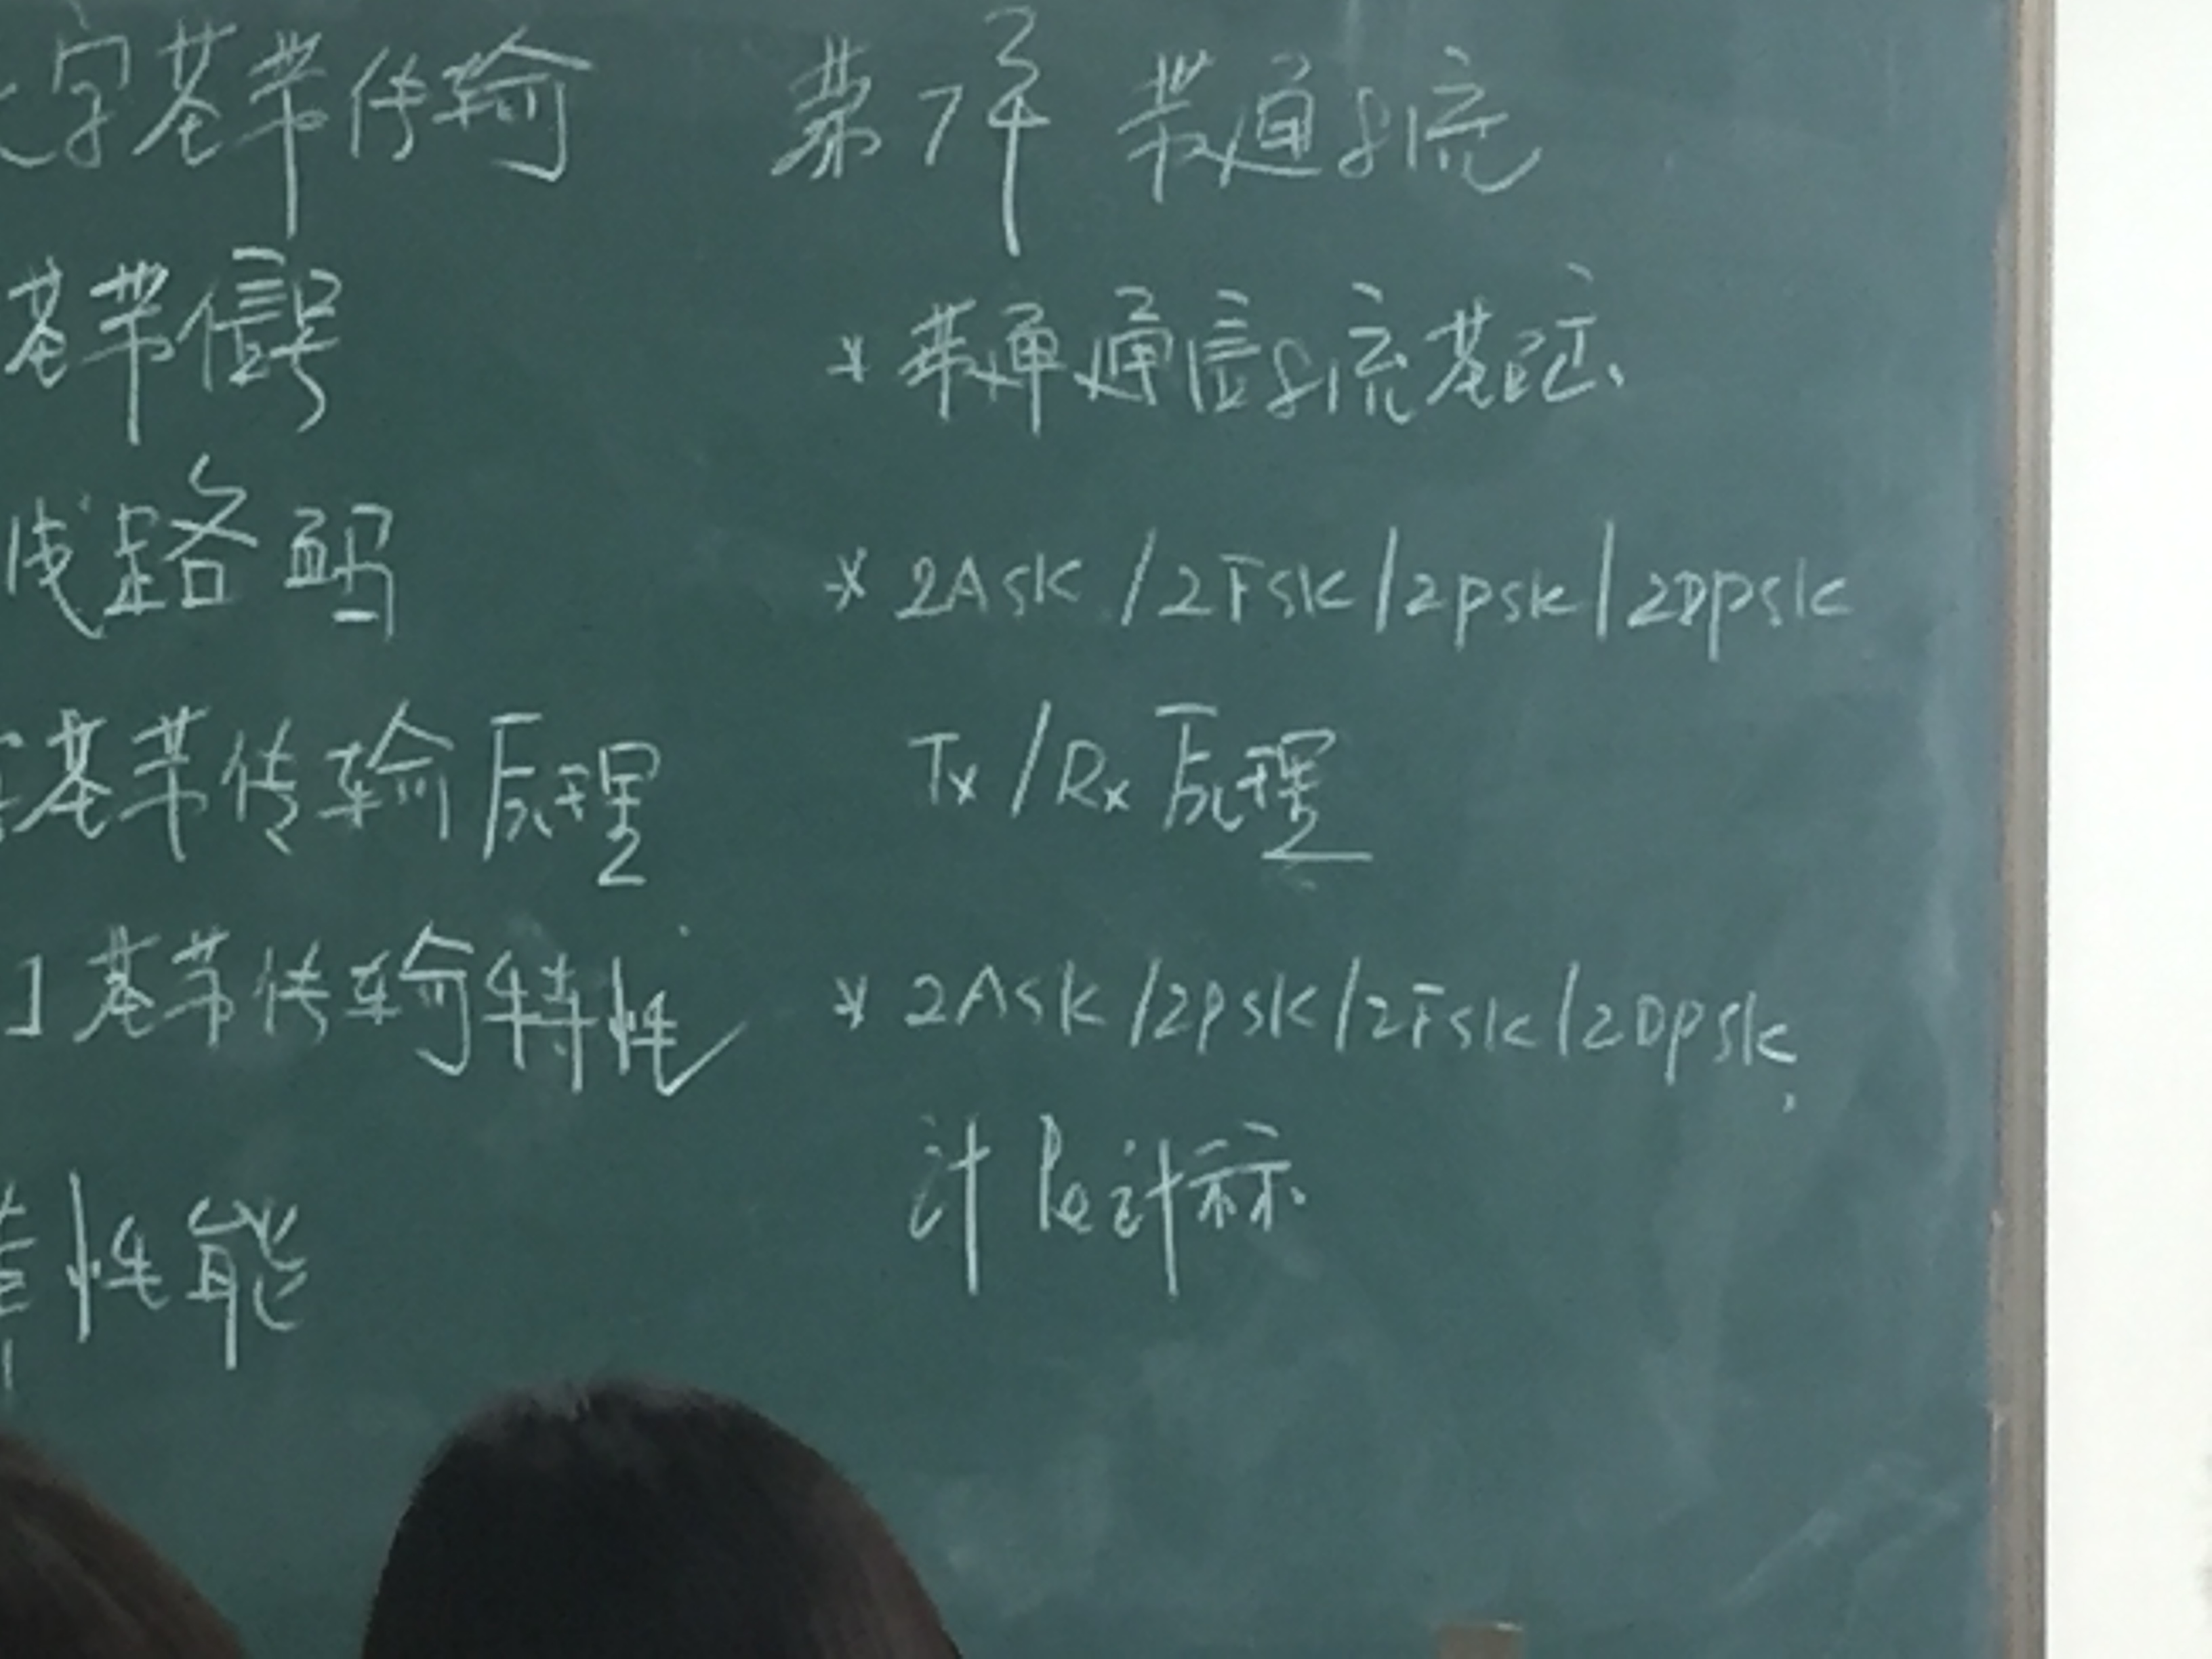 字基带传输
基带信号
线路码
基带传输原理
基带传输特性
性能
第7章 带通系统
* 带通通信系统基
* 2ASK/2FSK/2PSK/2DPSK
Tx/Rx原理
* 2ASK/2PSK/2FSK/2DPSK
计Pe计